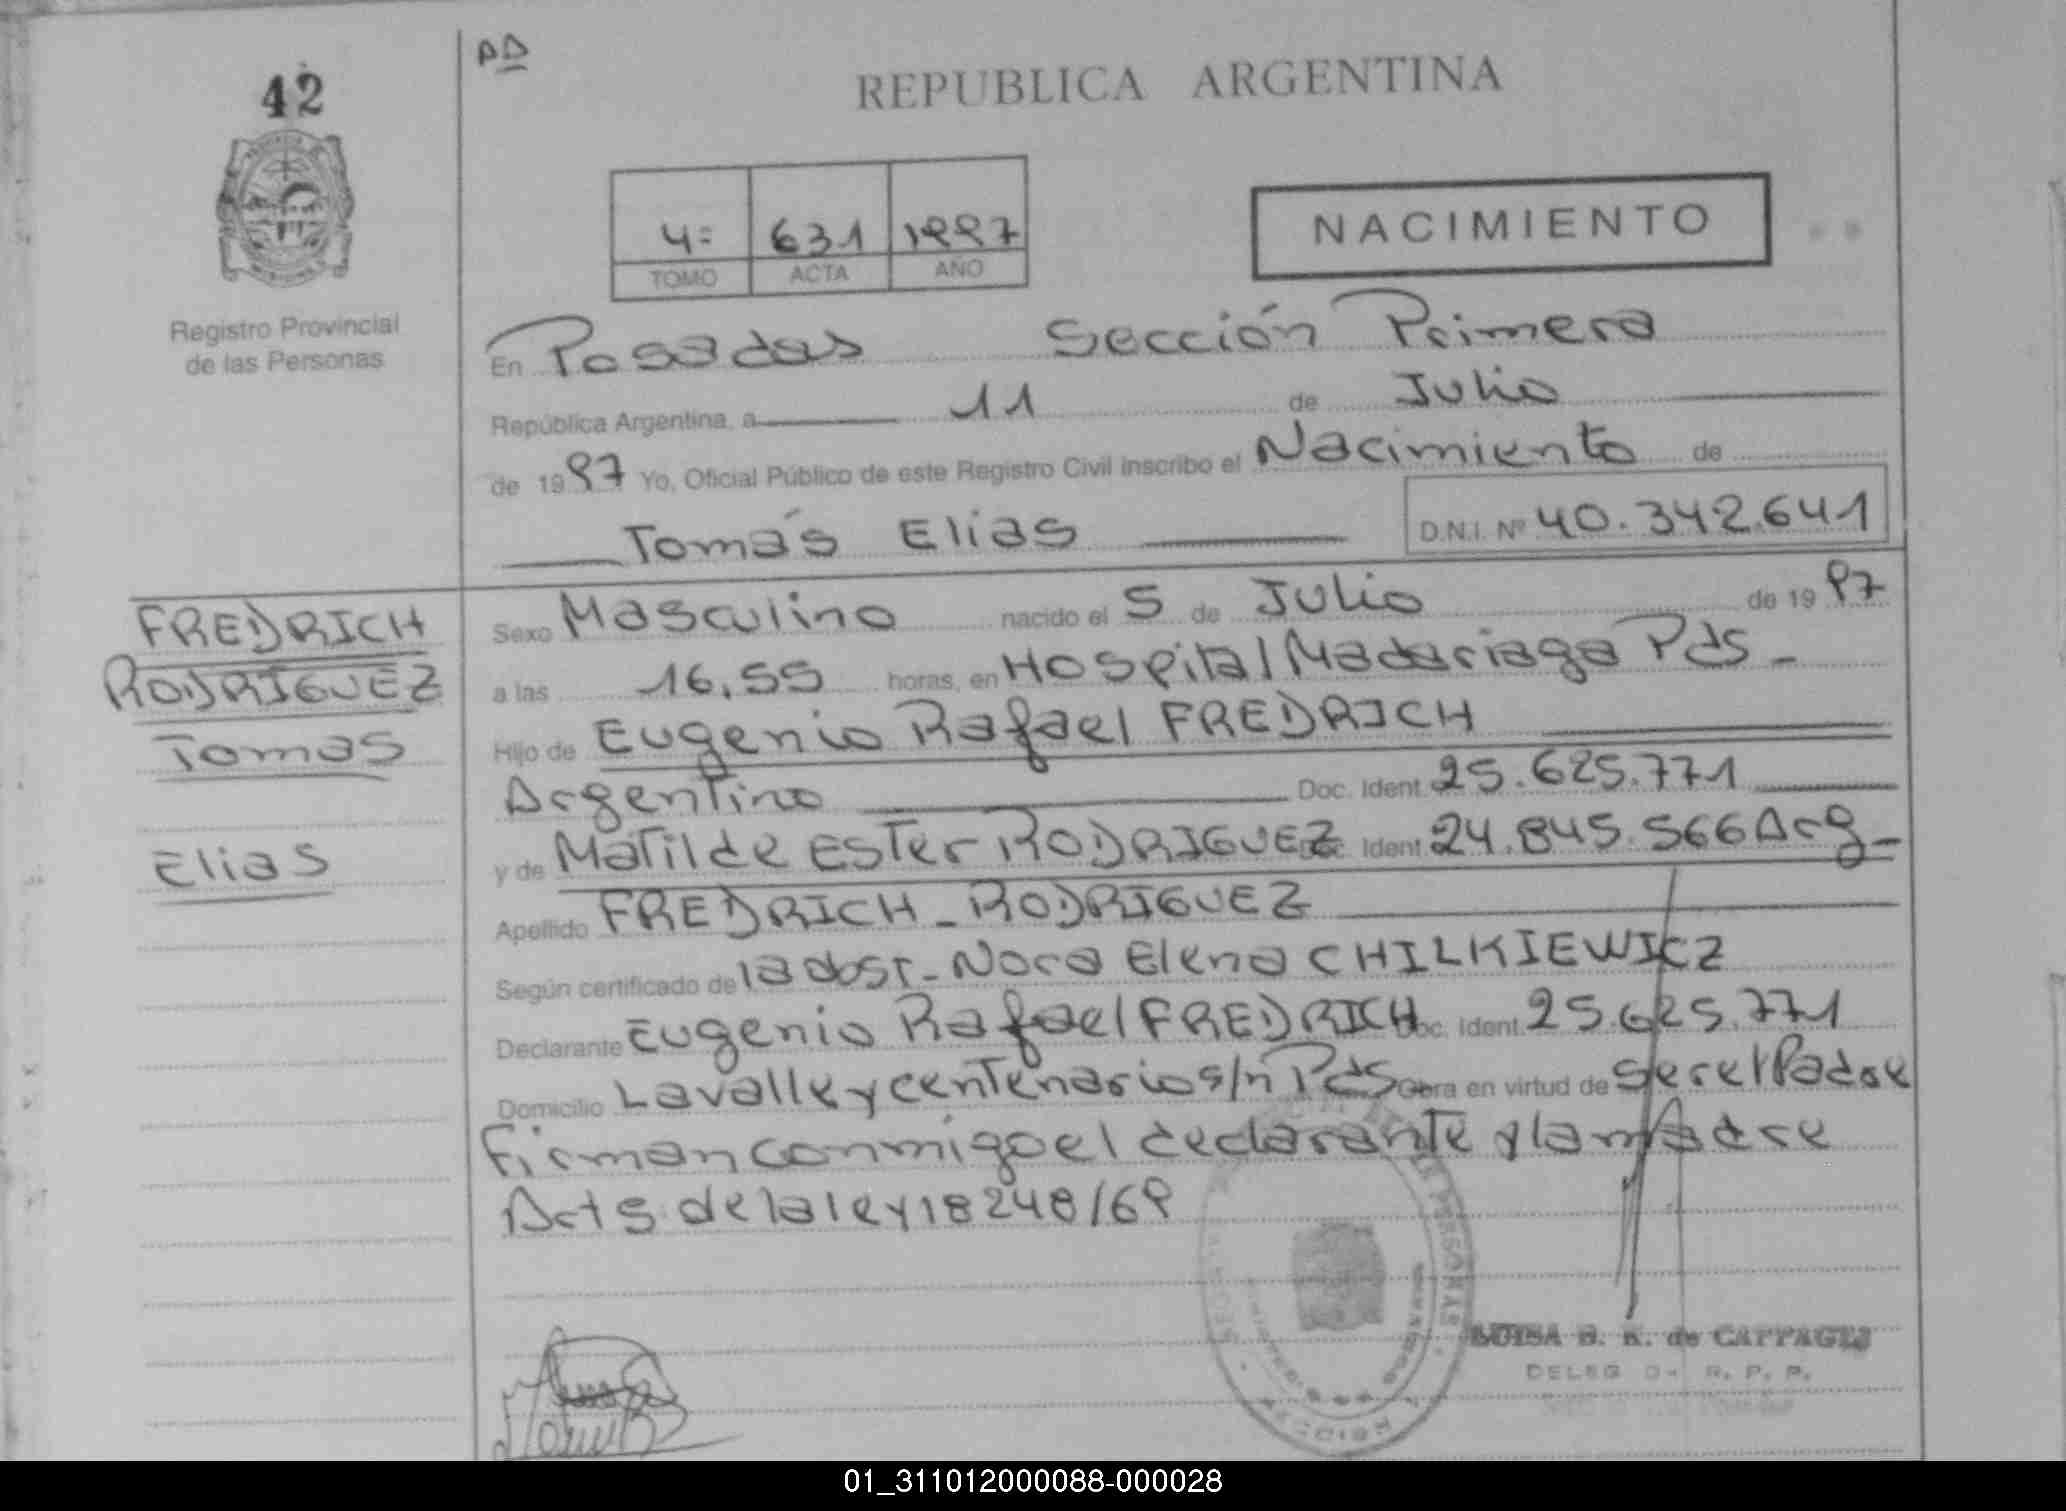 42
AD
REPUBLICA ARGENTINA
4= 631 1997
TOMO ACTA AÑO
NACIMIENTO
Registro Provincial
de las Personas
En Posadas Sección Primera
República Argentina, a 11 de Julio
de 1997 Yo, Oficial Público de este Registro Civil inscribo el Nacimiento de
Tomás Elias D.N.I. Nº 40.342.641
FREDRICH
RODRIGUEZ
Tomas
Elias
Sexo Masculino nacido el 5 de Julio de 1997
a las 16,55 horas, en Hospital Madariaga Pds -
Hijo de Eugenio Rafael FREDRICH
Argentino Doc. Ident. 25.625.771
y de Matilde Ester RODRIGUEZ Doc. Ident. 24.845.566 Arg-
Apellido FREDRICH - RODRIGUEZ
Según certificado de la obst- Nora Elena CHILKIEWICZ
Declarante Eugenio Rafael FREDRICH Doc. Ident. 25.625.771
Domicilio Lavalle y centenario s/n Pds Obra en virtud de ser el Padre
Firman conmigo el declarante y la madre
Art 5 de la ley 18248/69
LUISA B. K. de CAPPAGLI
DELEG R. P. P.
01_311012000088-000028